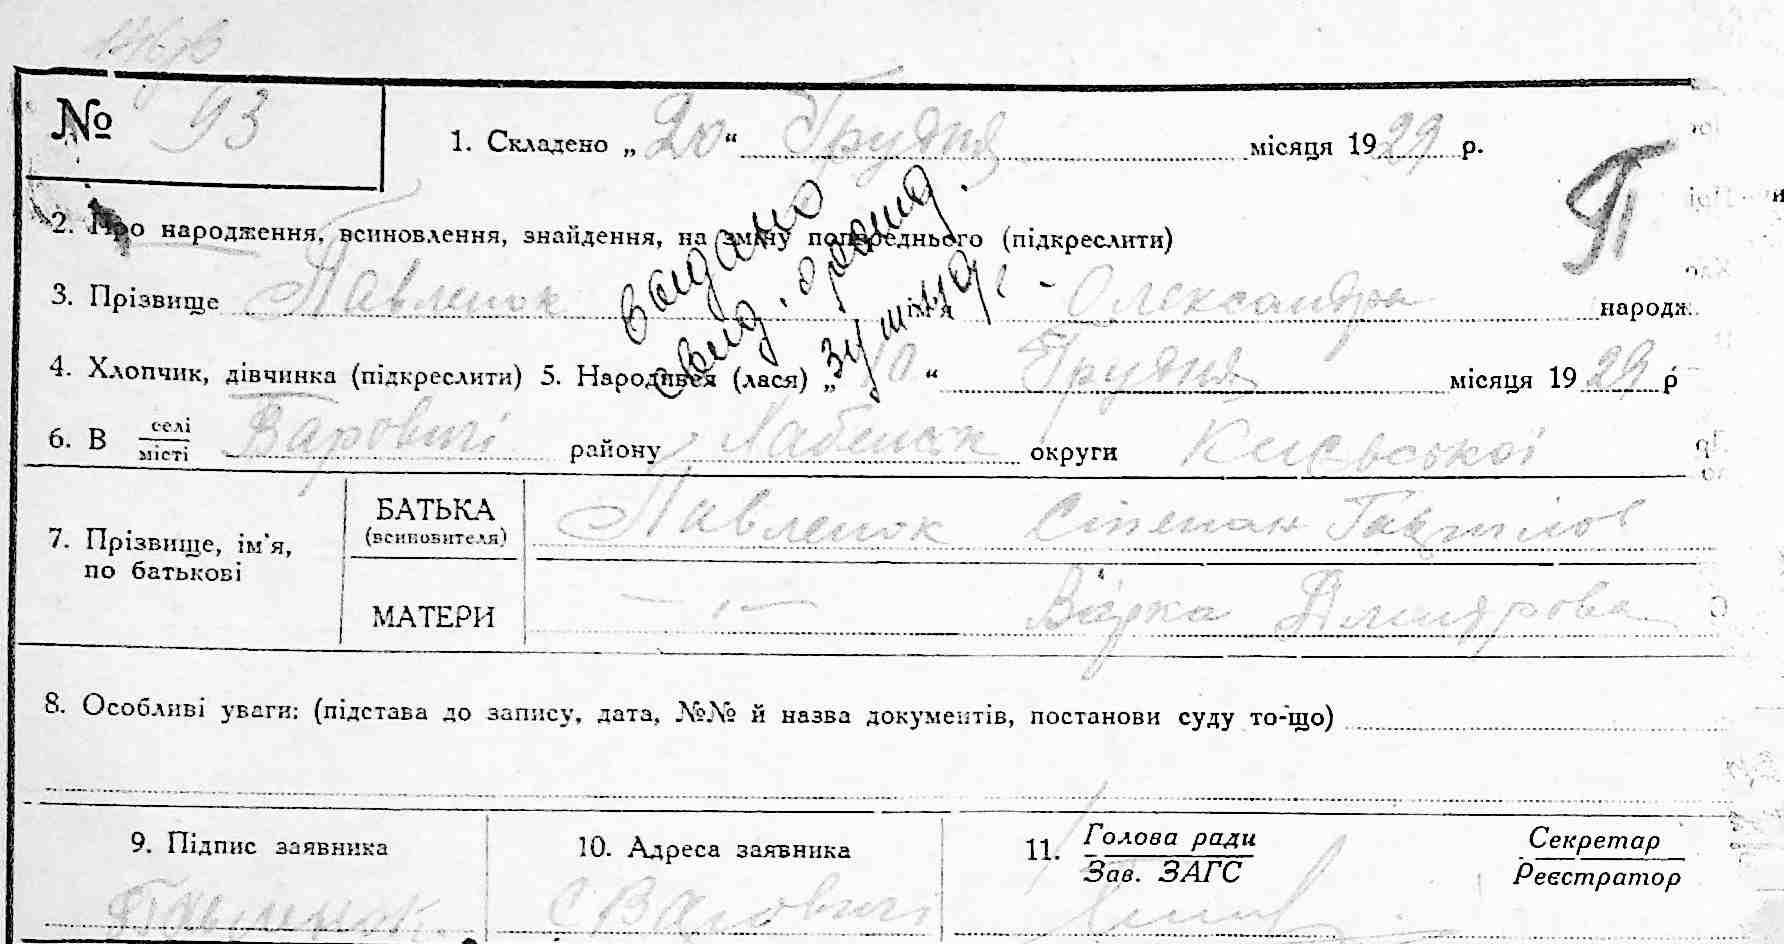 № 93
1. Складено „20“ Грудня місяця 1929 р.
2. Про народження, всиновлення, знайдення, на зміну попереднього (підкреслити)
3. Прізвище Павленок ім'я Олександра народж.
4. Хлопчик, дівчинка (підкреслити) 5. Народився (лася) „10“ Грудня місяця 1929 р
6. В селі/місті Варовичі району Лабенск округи Київської
7. Прізвище, ім'я, по батькові
БАТЬКА (всиновителя) Павленок Степан
МАТЕРИ — „ — Варка Дмитрова
8. Особливі уваги: (підстава до запису, дата, №№ й назва документів, постанови суду то-що)
9. Підпис заявника
10. Адреса заявника
11. Голова ради Секретар
Зав. ЗАГС Реєстратор
Павленок с Варовичі
П